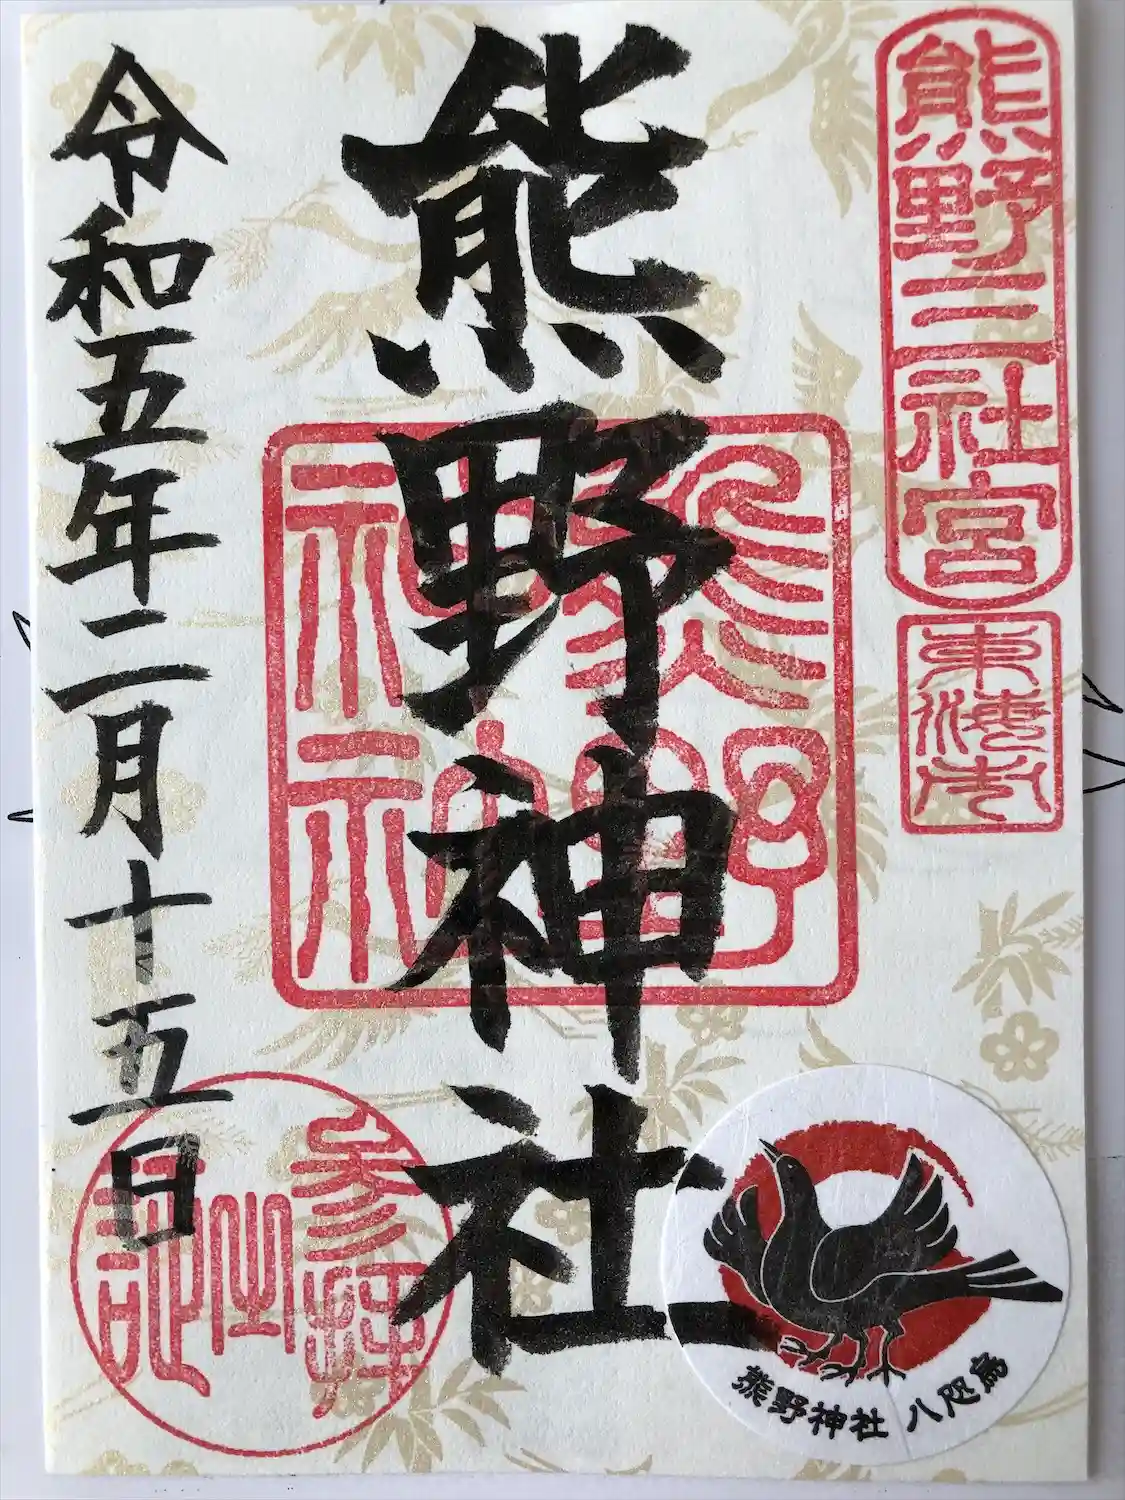 熊野三社宮
東海市
熊野神社
熊野神社
令和五年二月十五日
参拝
之
証
熊野神社 八咫烏